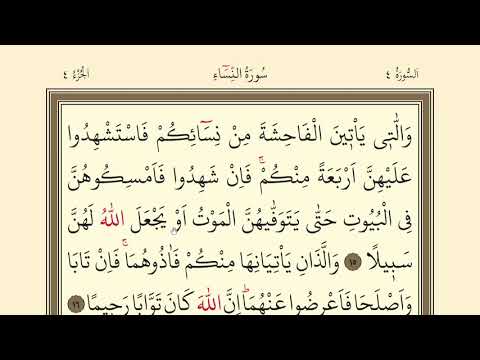 اَلسُّورَةُ ٤
سُورَةُ النِّسَٓاءِ
اَلْجُزْءُ ٤
وَالّٰت۪ي يَأْت۪ينَ الْفَاحِشَةَ مِنْ نِسَٓائِكُمْ فَاسْتَشْهِدُوا
عَلَيْهِنَّ اَرْبَعَةً مِنْكُمْۚ فَاِنْ شَهِدُوا فَاَمْسِكُوهُنَّ
فِي الْبُيُوتِ حَتّٰى يَتَوَفّٰيهُنَّ الْمَوْتُ اَوْ يَجْعَلَ اللّٰهُ لَهُنَّ
سَب۪يلًا ١٥ وَالَّذَانِ يَأْتِيَانِهَا مِنْكُمْ فَاٰذُوهُمَاۚ فَاِنْ تَابَا
وَاَصْلَحَا فَاَعْرِضُوا عَنْهُمَاۜ اِنَّ اللّٰهَ كَانَ تَوَّابًا رَح۪يمًا ١٦